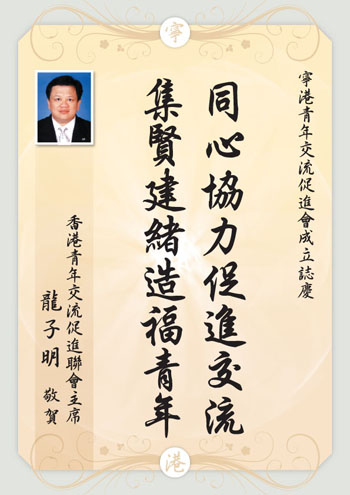 寧
寧港青年交流促進會成立誌慶
同心協力促進交流
集賢建緒造福青年
香港青年交流促進聯會主席
龍子明 敬賀
港